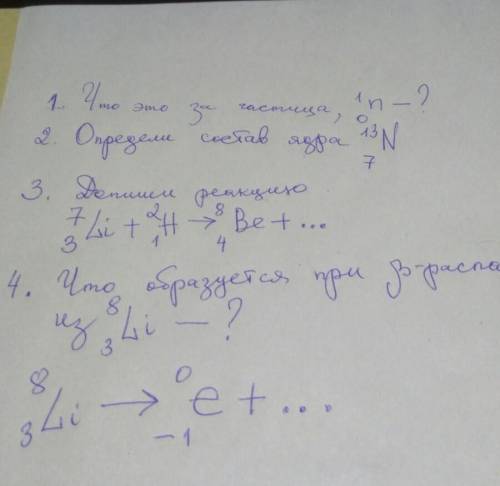 1. Что это за частица, ¹₀n – ?
2. Определи состав ядра ¹³₇N
3. Допиши реакцию
⁷₃Li + ²₁H → ⁸₄Be + ...
4. Что образуется при β-распа
из ⁸₃Li – ?
⁸₃Li → ⁰₋₁e + ...